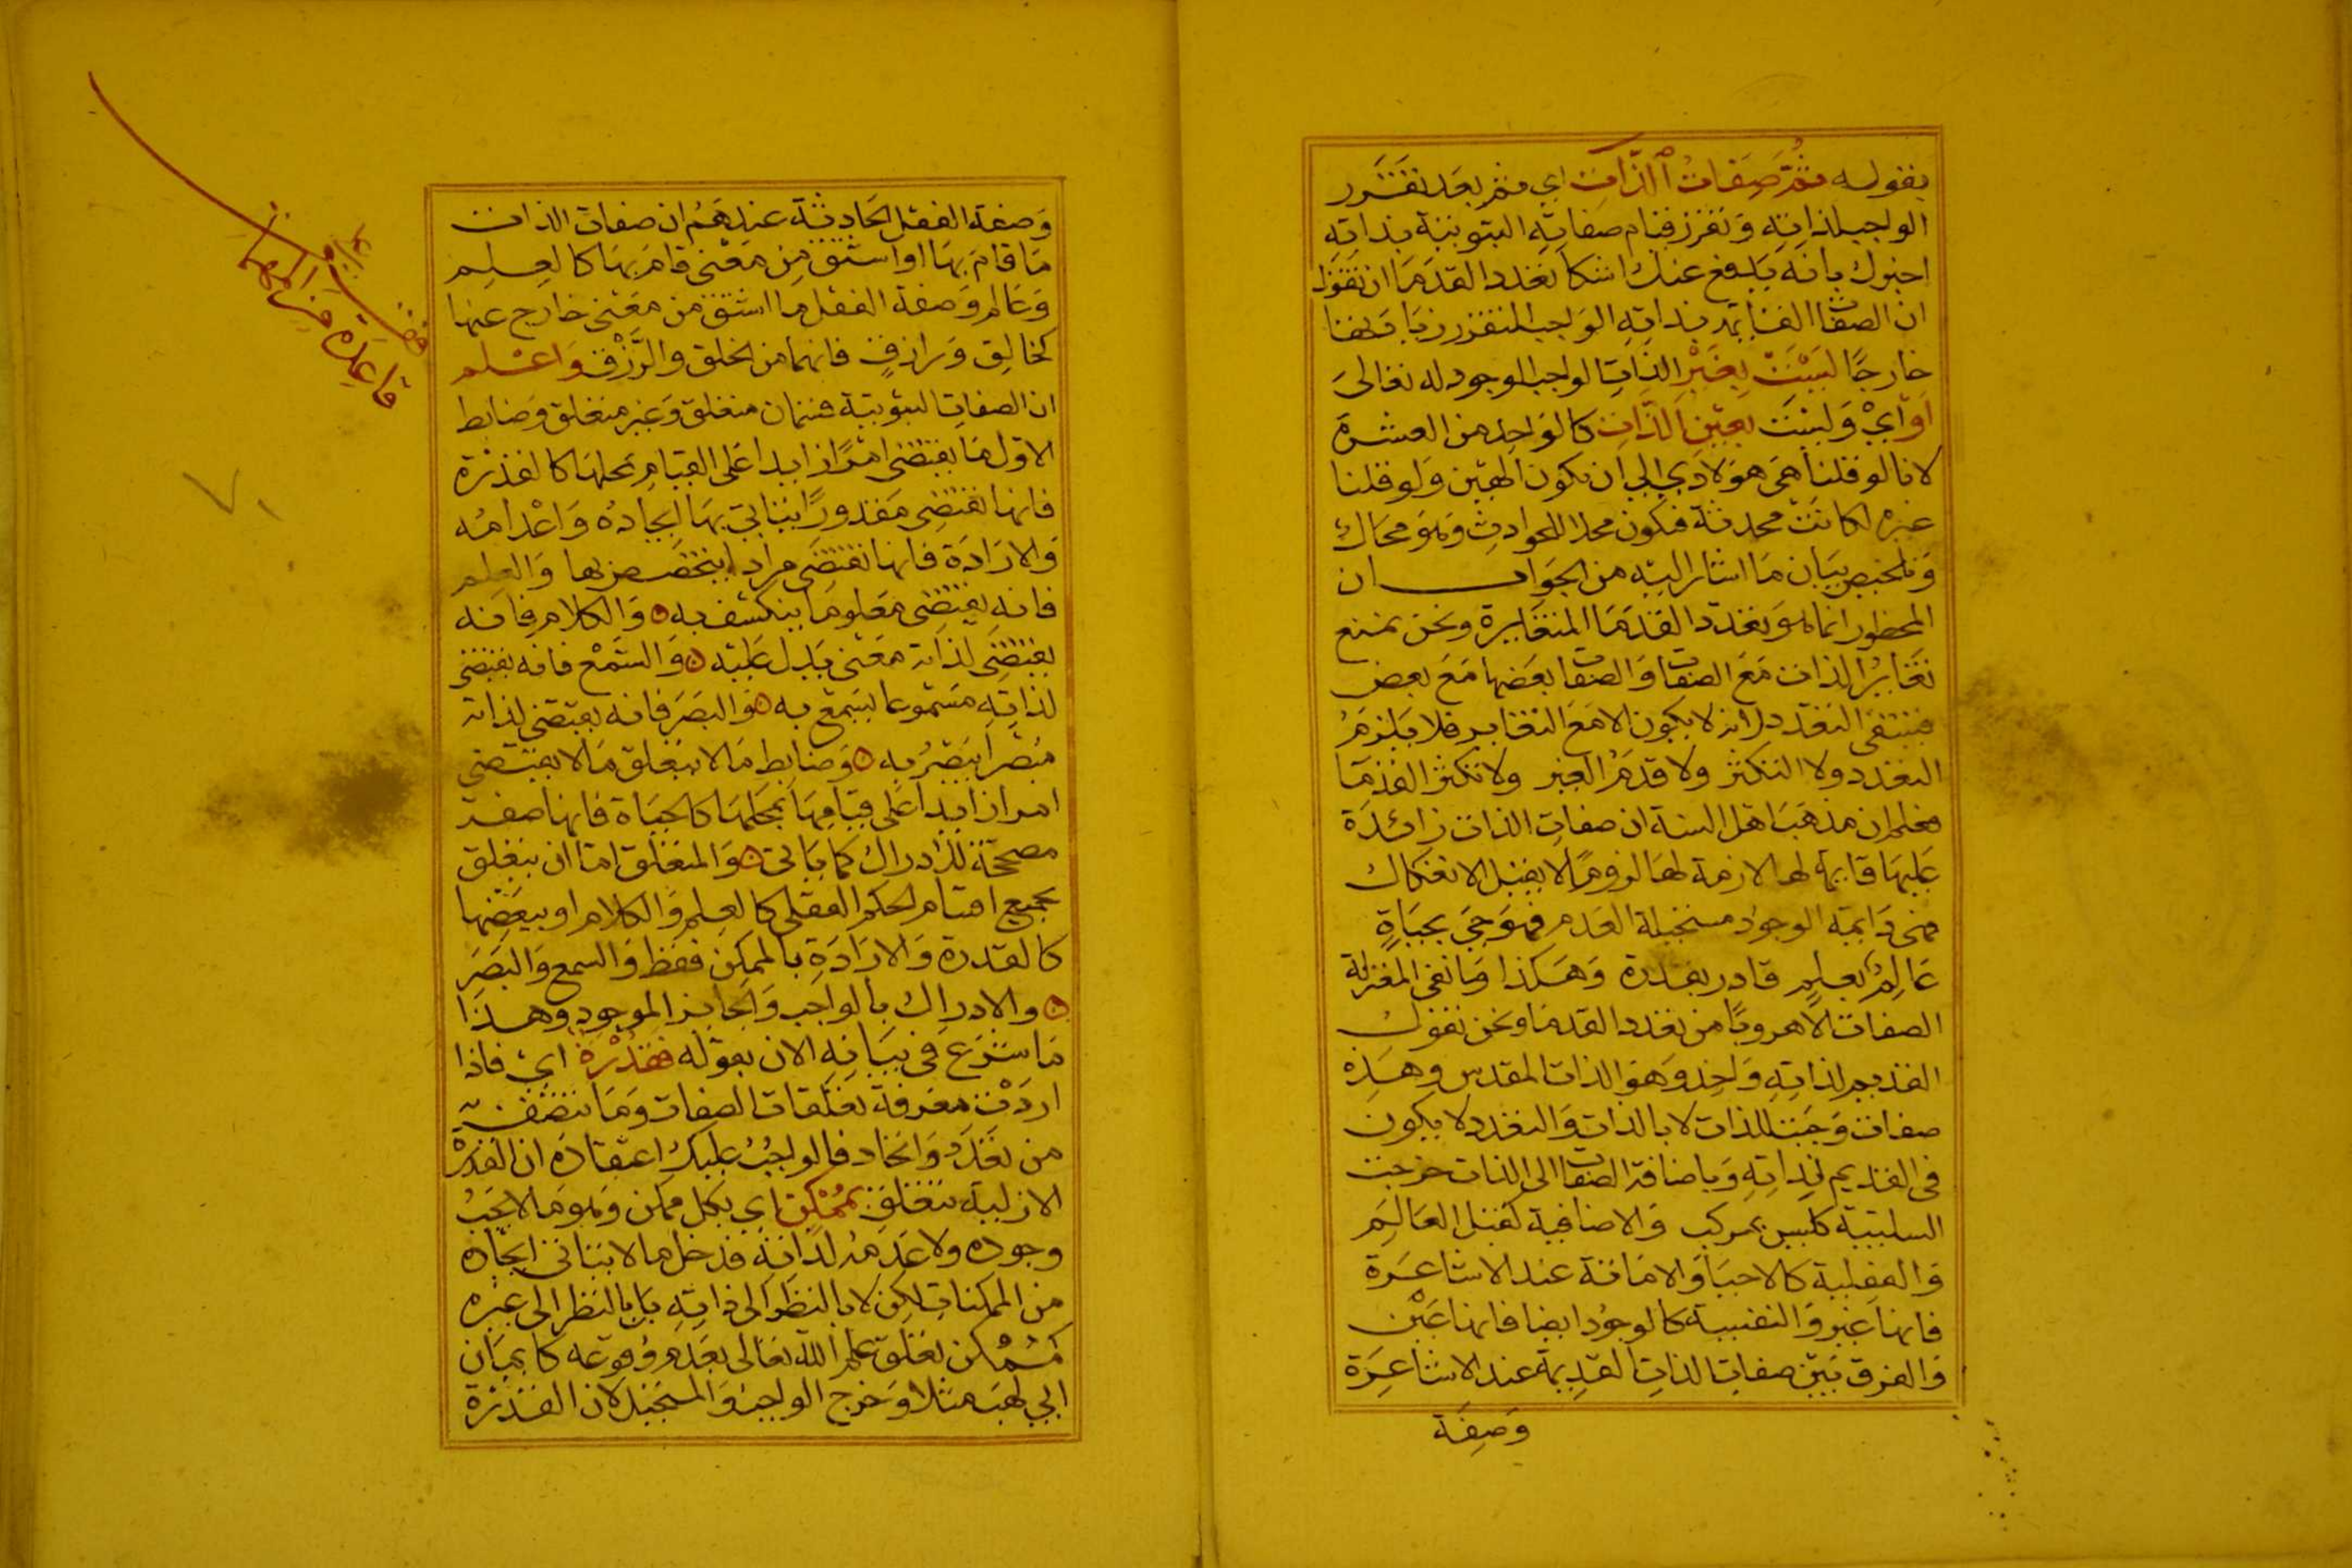 بقوله ثُمَّ صِفَاتُ الذَّاتِ اي ثم بعد تقرر
الواجب لذاته وتقرر قيام صفاته الثبوتية بذاته
اخبرك بانه يدفع عنك اشكال تعدد القدما ان تقول
ان الصفات القايمة بذاته الواجب المتقرر زيادتها
خارجًا لَيْسَتْ بِغَيْرِ الذات الواجب الوجود له تعالى
أَوْ أي وليست بِعَيْنِ الذَّاتِ كالواحد من العشرة
لانا لو قلنا هي هو لادي الي ان تكون الهين ولو قلنا
غيره لكانت محدثة فيكون محلا للحوادث وهو محال
وتلخيص بيان ما اشار اليه من الجواب ان
المحظور انما هو تعدد القدما المتغايرة ونحن نمنع
تغاير الذات مع الصفات والصفات بعضها مع بعض
فينتفي التعدد لانه لا يكون الا مع التغاير فلا يلزم
التعدد ولا التكثر ولا قدم الغير ولا تكثر القدما
فعلم ان مذهب اهل السنة ان صفات الذات زائدة
عليها قايمة لها لازمة لها لزوما لا يقبل الانفكاك
فهي دايمة الوجود مستحيلة العدم فهو حي بحياة
عالم بعلم قادر بقدرة وهكذا وما نفي المعتزلة
الصفات الا هروبا من تعدد القدما ونحن نقول
القديم لذاته واحد وهو الذات المقدس وهذه
صفات وجبت للذات لا بالذات والتعدد لا يكون
في القديم لذاته وباضافة الصفات الى الذات خرجت
السلبية كليس بمركب والاضافية كقبل العالم
والفعلية كالاحيا والاماتة عند الاشاعرة
فانها غير والنفسية كالوجود ايضا فانها عين
والفرق بين صفات الذات القديمة عند الاشاعرة
وصفة
وصفة الفعل الحادثة عندهم ان صفات الذات
ما قام بها او اشتق من معنى قام بها كالعلم
وعالم وصفة الفعل ما اشتق من معنى خارج عنها
كخالق ورازق فانهما من الخلق والرزق واعلم
ان الصفات الثبوتية قسمان متعلق وغير متعلق وضابط
الاول ما يقتضي امرًا زايدا على القيام بمحلها كالقدرة
فانها تقتضي مقدورًا يتاتي بها ايجاده واعدامه
والارادة فانها تقتضي مرادا يتخصص بها والعلم
فانه يقتضي معلوما ينكشف به والكلام فانه
يقتضي لذاته معنى يدل عليه والسمع فانه يقتضي
لذاته مسموعا يسمع به والبصر فانه يقتضي لذاته
مبصرا يبصر به وضابط ما لا يتعلق ما لا يقتضي
امرا زايدا على قيامها بمحلها كالحياة فانها صفة
مصححة للادراك كما ياتي والمتعلق اما ان يتعلق
بجميع اقسام الحكم العقلي كالعلم والكلام او ببعضها
كالقدرة والارادة بالممكن فقط والسمع والبصر
والادراك بالواجب والجايز الموجود وهذا
ما شرع في بيانه الان بقوله فَقُدْرَةٌ اي فاذا
اردت معرفة تعلقات الصفات وما تتصف به
من تعدد واتحاد فالواجب عليك اعتقاده ان القدرة
الازلية تتعلق بِمُمْكِنٍ اي بكل ممكن وهو ما لا يجب
وجوده ولا عدمه لذاته فدخل ما لا يتاتي ايجاده
من الممكنات لكن لا بالنظر الى ذاته بل بالنظر الى غيره
كممكن تعلق علم الله تعالى بعدم وقوعه كايمان
ابي لهب مثلا وخرج الواجب والمستحيل لان القدرة